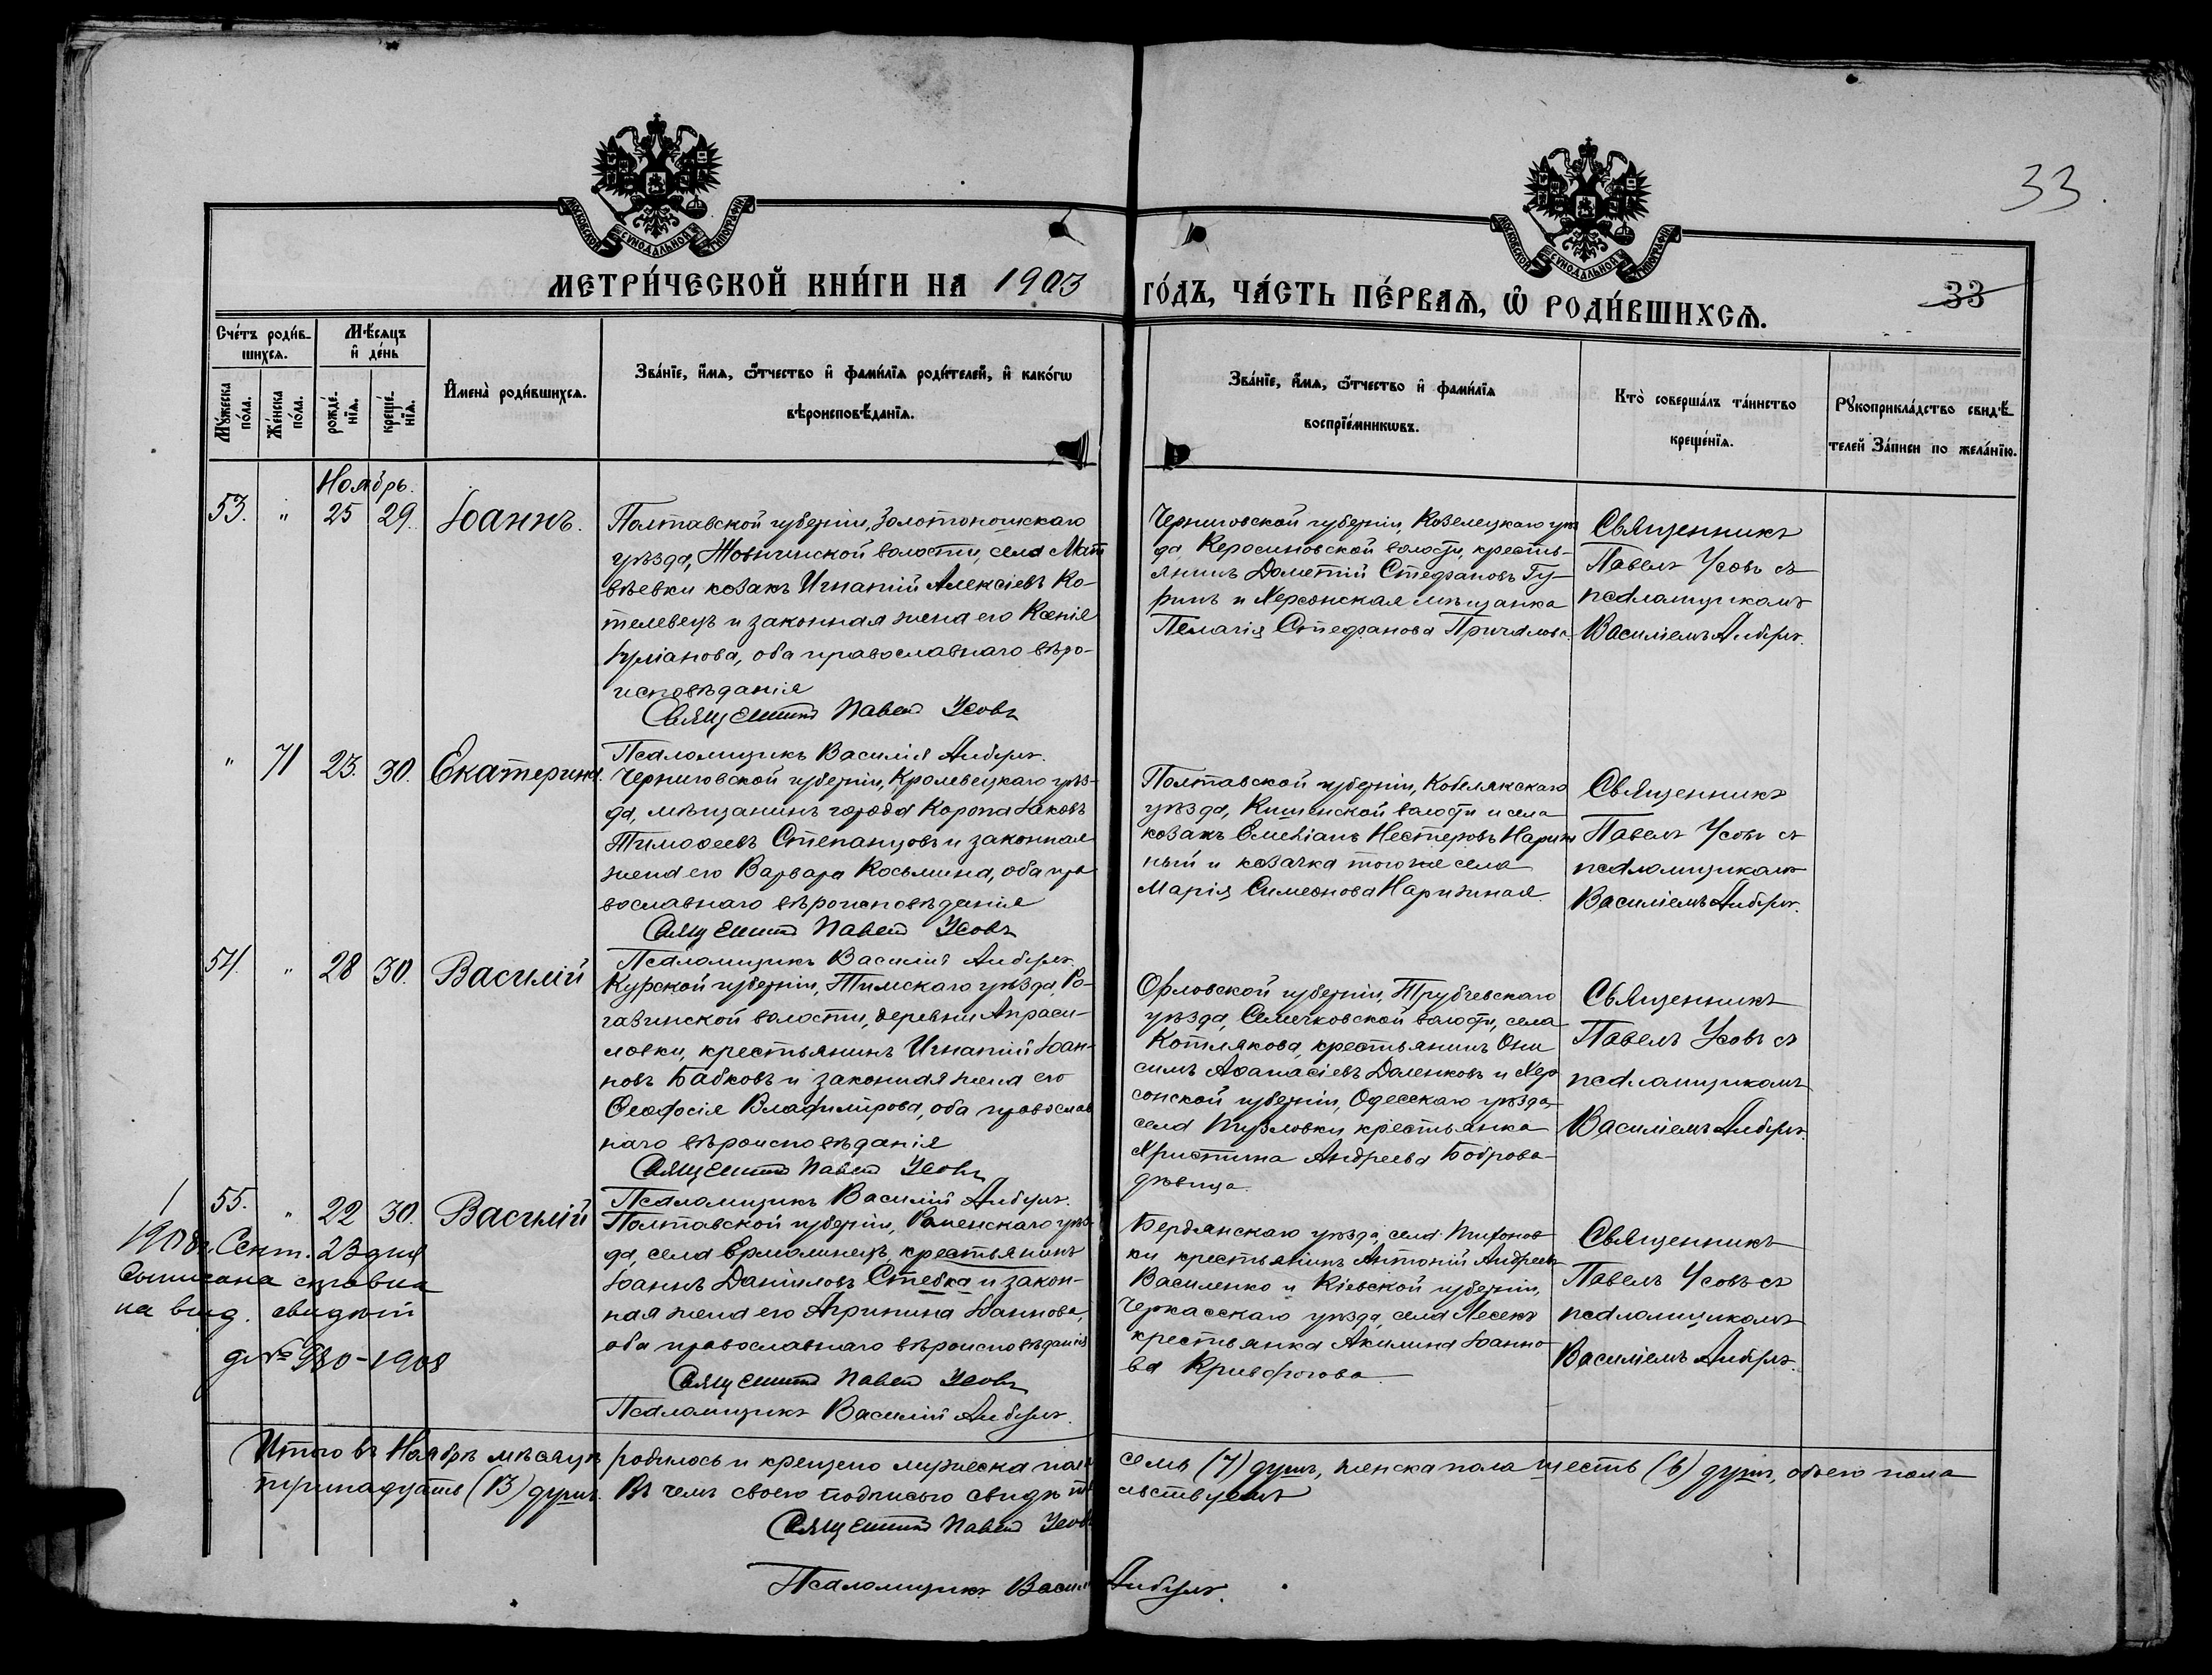 33.
МОСКОВСКОЙ СУНОДАЛЬНОЙ ТИПОГРАФІИ
МОСКОВСКОЙ СУНОДАЛЬНОЙ ТИПОГРАФІИ
МЕТРИ́ЧЕСКОЙ КНИ́ГИ НА 1903
ГО́ДЪ, ЧА́СТЬ ПЕ́РВАѦ, Ѽ РОДИ́ВШИХСѦ.
33
Сче́тъ роди́в-
шихсѧ.
Мѣ́сѧцъ
и҆ де́нь
Мꙋ́жеска
по́ла.
Же́нска
по́ла.
рожде́-
нїѧ.
креще́-
нїѧ.
И҆мена̀ роди́вшихсѧ.
Зва́нїе, и҆́мѧ, ѻ҆́тчество и҆ фами́лїѧ роди́телей, и҆ како́гѡ
вѣроисповѣ́данїѧ.
Зва́нїе, и҆́мѧ, ѻ҆́тчество и҆ фами́лїѧ
воспрїе́мникѡвъ.
Кто̀ соверша́лъ та́инство
креще́нїѧ.
Рꙋкоприкла́дство свидѣ́-
телей За́писи по жела́нїю.
Ноябрь.
53. " 25 29. Іоаннъ.
Полтавской губерніи, Золотоношскаго
уѣзда, Жовнинской волости, села Мат
вѣевки козакъ Игнатій Алексіевъ Ко-
телевецъ и законная жена его Ксенія
Іуліанова, оба православнаго вѣро-
исповѣданія
Священникъ Павелъ Усовъ
Псаломщикъ Василій
Черниговской губерніи, Козелецкаго уѣз
да, волости, кресть-
янинъ Дометій Стефановъ Гу-
ринъ и Херсонская мѣщанка
Пелагія Стефанова
Священникъ
Павелъ Усовъ съ
псаломщикомъ
Василіемъ
" 71 23. 30. Екатерина.
Черниговской губерніи, Кролевецкаго уѣз-
да, мѣщанинъ города Коропа Іаковъ
Тимоѳеевъ Степанцовъ и законная
жена его Варвара Косьмина, оба пра
вославнаго вѣроисповѣданія
Священникъ Павелъ Усовъ
Псаломщикъ Василій
Полтавской губерніи, Кобелякскаго
уѣзда, Кишенской волости и села
козакъ Емеліанъ Нестеровъ Нариж
ный и козачка того же села
Марія Симеонова Нарижная.
Священникъ
Павелъ Усовъ съ
псаломщикомъ
Василіемъ
54. " 28 30. Василій
Курской губерніи, Тимскаго уѣзда, Ро-
гозинской волости, деревни
ловки, крестьянинъ Игнатій Іоан-
новъ Бабковъ и законная жена его
Ѳеодосія Владимірова, оба православ
наго вѣроисповѣданія
Священникъ Павелъ Усовъ
Псаломщикъ Василій
Орловской губерніи, Трубчевскаго
уѣзда, Семячковской волости, села
Котлякова, крестьянинъ Они
симъ Аѳанасіевъ Даленковъ и Хер
сонской губерніи, Одесскаго уѣзда,
села крестьянка
Христина Андреева Боброва
дѣвица.
Священникъ
Павелъ Усовъ съ
псаломщикомъ
Василіемъ
55. " 22 30. Василій
Полтавской губерніи, Роменскаго уѣз-
да, села Ярмолинецъ, крестьянинъ
Іоаннъ Даніиловъ Стебка и закон-
ная жена его Агрипина Іоаннова,
оба православнаго вѣроисповѣданія
Священникъ Павелъ Усовъ
Псаломщикъ Василій
Бердянскаго уѣзда, села
ки крестьянинъ Антоній Андреевъ
Василенко и Кіевской губерніи,
Черкасскаго уѣзда, села Лесекъ
крестьянка Акилина Іоанно
ва
Священникъ
Павелъ Усовъ съ
псаломщикомъ
Василіемъ
1908 г. Сент. 23 дня
Выписана справка
на выд. свидѣт
д. № 980-1908
Итого въ Ноябрѣ мѣсяцѣ родилось и крещено мужеска пола семь (7) душъ, женска пола шесть (6) душъ, обоего пола
тринадцать (13) душъ. Въ чемъ своею подписью свидѣтельствуемъ
Священникъ Павелъ Усовъ
Псаломщикъ